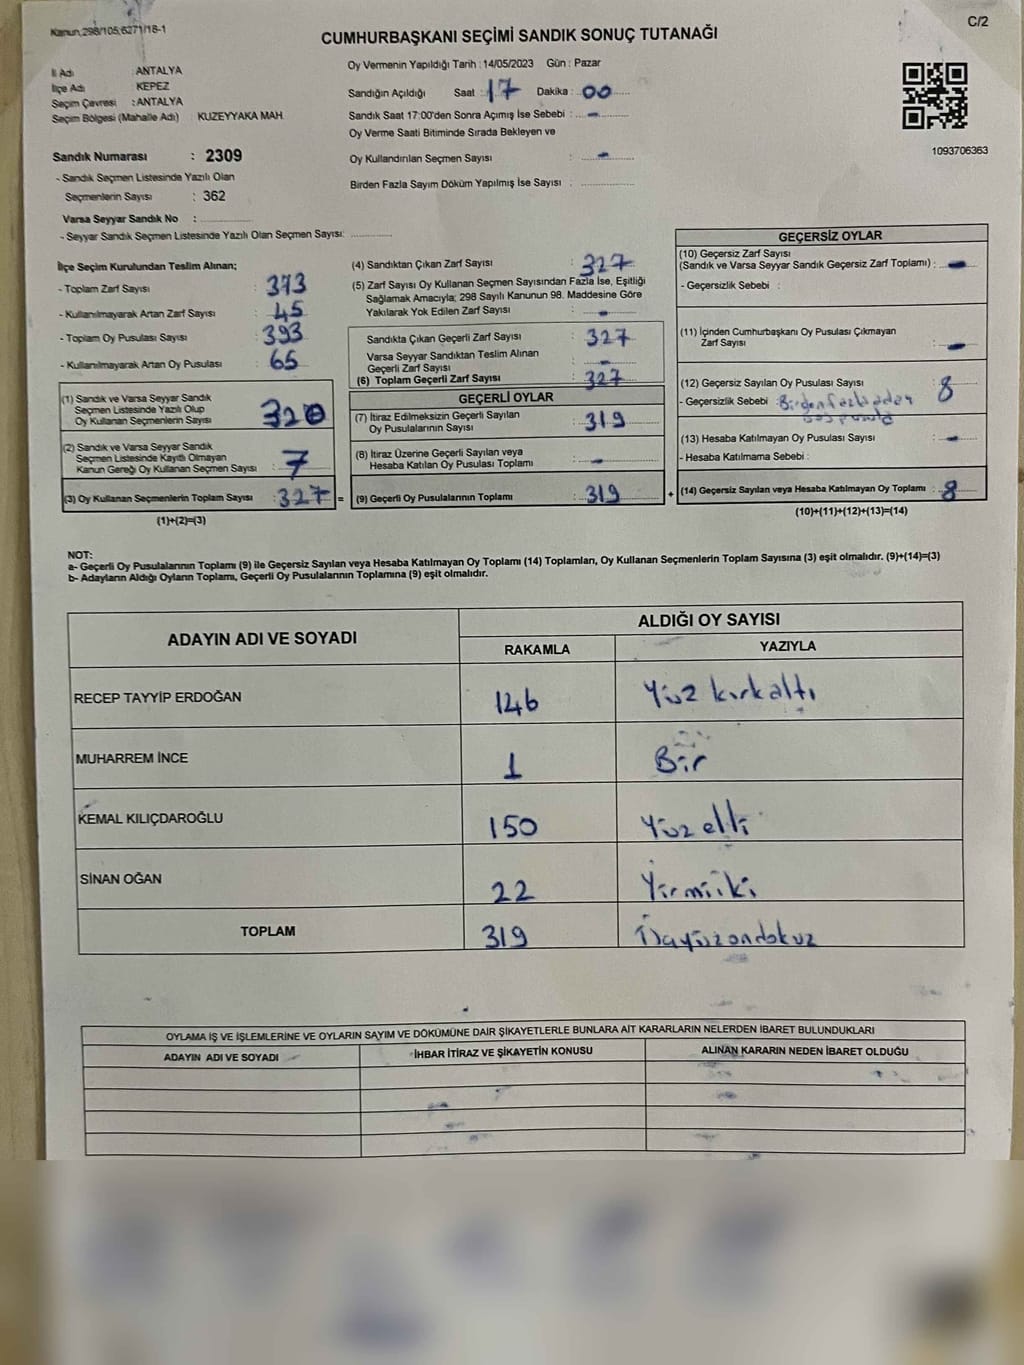 Kanun,298/105;6271/18-1
C/2
CUMHURBAŞKANI SEÇİMİ SANDIK SONUÇ TUTANAĞI
İl Adı : ANTALYA
İlçe Adı : KEPEZ
Seçim Çevresi : ANTALYA
Seçim Bölgesi (Mahalle Adı) KUZEYYAKA MAH.
Sandık Numarası : 2309
- Sandık Seçmen Listesinde Yazılı Olan
Seçmenlerin Sayısı : 362
Varsa Seyyar Sandık No : ............
- Seyyar Sandık Seçmen Listesinde Yazılı Olan Seçmen Sayısı: ............
Oy Vermenin Yapıldığı Tarih : 14/05/2023 Gün : Pazar
Sandığın Açıldığı Saat : 17 Dakika : 00
Sandık Saat 17:00'den Sonra Açımış İse Sebebi : -
Oy Verme Saati Bitiminde Sırada Bekleyen ve
Oy Kullandırılan Seçmen Sayısı : -
Birden Fazla Sayım Döküm Yapılmış İse Sayısı : ............
1093706363
İlçe Seçim Kurulundan Teslim Alınan;
- Toplam Zarf Sayısı : 373
- Kullanılmayarak Artan Zarf Sayısı : 45
- Toplam Oy Pusulası Sayısı : 393
- Kullanılmayarak Artan Oy Pusulası : 65
(1) Sandık ve Varsa Seyyar Sandık
Seçmen Listesinde Yazılı Olup
Oy Kullanan Seçmenlerin Sayısı : 320
(2) Sandık ve Varsa Seyyar Sandık
Seçmen Listesinde Kayıtlı Olmayan
Kanun Gereği Oy Kullanan Seçmen Sayısı : 7
(3) Oy Kullanan Seçmenlerin Toplam Sayısı : 327 =
(1)+(2)=(3)
(4) Sandıktan Çıkan Zarf Sayısı : 327
(5) Zarf Sayısı Oy Kullanan Seçmen Sayısından Fazla İse, Eşitliği
Sağlamak Amacıyla; 298 Sayılı Kanunun 98. Maddesine Göre
Yakılarak Yok Edilen Zarf Sayısı : -
Sandıkta Çıkan Geçerli Zarf Sayısı : 327
Varsa Seyyar Sandıktan Teslim Alınan
Geçerli Zarf Sayısı : -
(6) Toplam Geçerli Zarf Sayısı : 327
GEÇERLİ OYLAR
(7) İtiraz Edilmeksizin Geçerli Sayılan
Oy Pusulalarının Sayısı : 319
(8) İtiraz Üzerine Geçerli Sayılan veya
Hesaba Katılan Oy Pusulası Toplamı : -
(9) Geçerli Oy Pusulalarının Toplamı : 319 +
GEÇERSİZ OYLAR
(10) Geçersiz Zarf Sayısı
(Sandık ve Varsa Seyyar Sandık Geçersiz Zarf Toplamı) : -
- Geçersizlik Sebebi :
(11) İçinden Cumhurbaşkanı Oy Pusulası Çıkmayan
Zarf Sayısı : -
(12) Geçersiz Sayılan Oy Pusulası Sayısı : 8
- Geçersizlik Sebebi : Birden fazla aday
boş pusula
(13) Hesaba Katılmayan Oy Pusulası Sayısı : -
- Hesaba Katılmama Sebebi :
(14) Geçersiz Sayılan veya Hesaba Katılmayan Oy Toplamı : 8
(10)+(11)+(12)+(13)=(14)
NOT:
a- Geçerli Oy Pusulalarının Toplamı (9) ile Geçersiz Sayılan veya Hesaba Katılmayan Oy Toplamı (14) Toplamları, Oy Kullanan Seçmenlerin Toplam Sayısına (3) eşit olmalıdır. (9)+(14)=(3)
b- Adayların Aldığı Oyların Toplamı, Geçerli Oy Pusulalarının Toplamına (9) eşit olmalıdır.
ADAYIN ADI VE SOYADI
ALDIĞI OY SAYISI
RAKAMLA YAZIYLA
RECEP TAYYİP ERDOĞAN 146 Yüz kırkaltı
MUHARREM İNCE 1 Bir
KEMAL KILIÇDAROĞLU 150 Yüz elli
SİNAN OĞAN 22 Yirmiiki
TOPLAM 319 Üçyüzondokuz
OYLAMA İŞ VE İŞLEMLERİNE VE OYLARIN SAYIM VE DÖKÜMÜNE DAİR ŞİKAYETLERLE BUNLARA AİT KARARLARIN NELERDEN İBARET BULUNDUKLARI
ADAYIN ADI VE SOYADI İHBAR İTİRAZ VE ŞİKAYETİN KONUSU ALINAN KARARIN NEDEN İBARET OLDUĞU